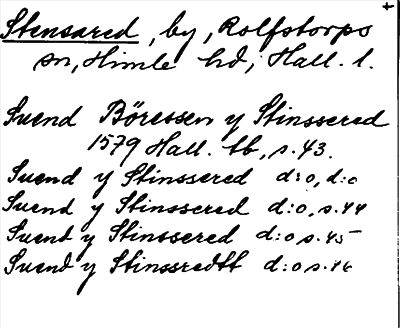 Stensared, by, Rolfstorps
sn, Himle hd, Hall. l.
Svend Böressen y Stinssered
1579 Hall. tb, s. 43.
Svend y Stinssered d:o, d:o
Svend y Stinssered d:o, s. 44
Svend y Stinssered d:o s. 45
Svend y Stinssredtt d:o s. 46